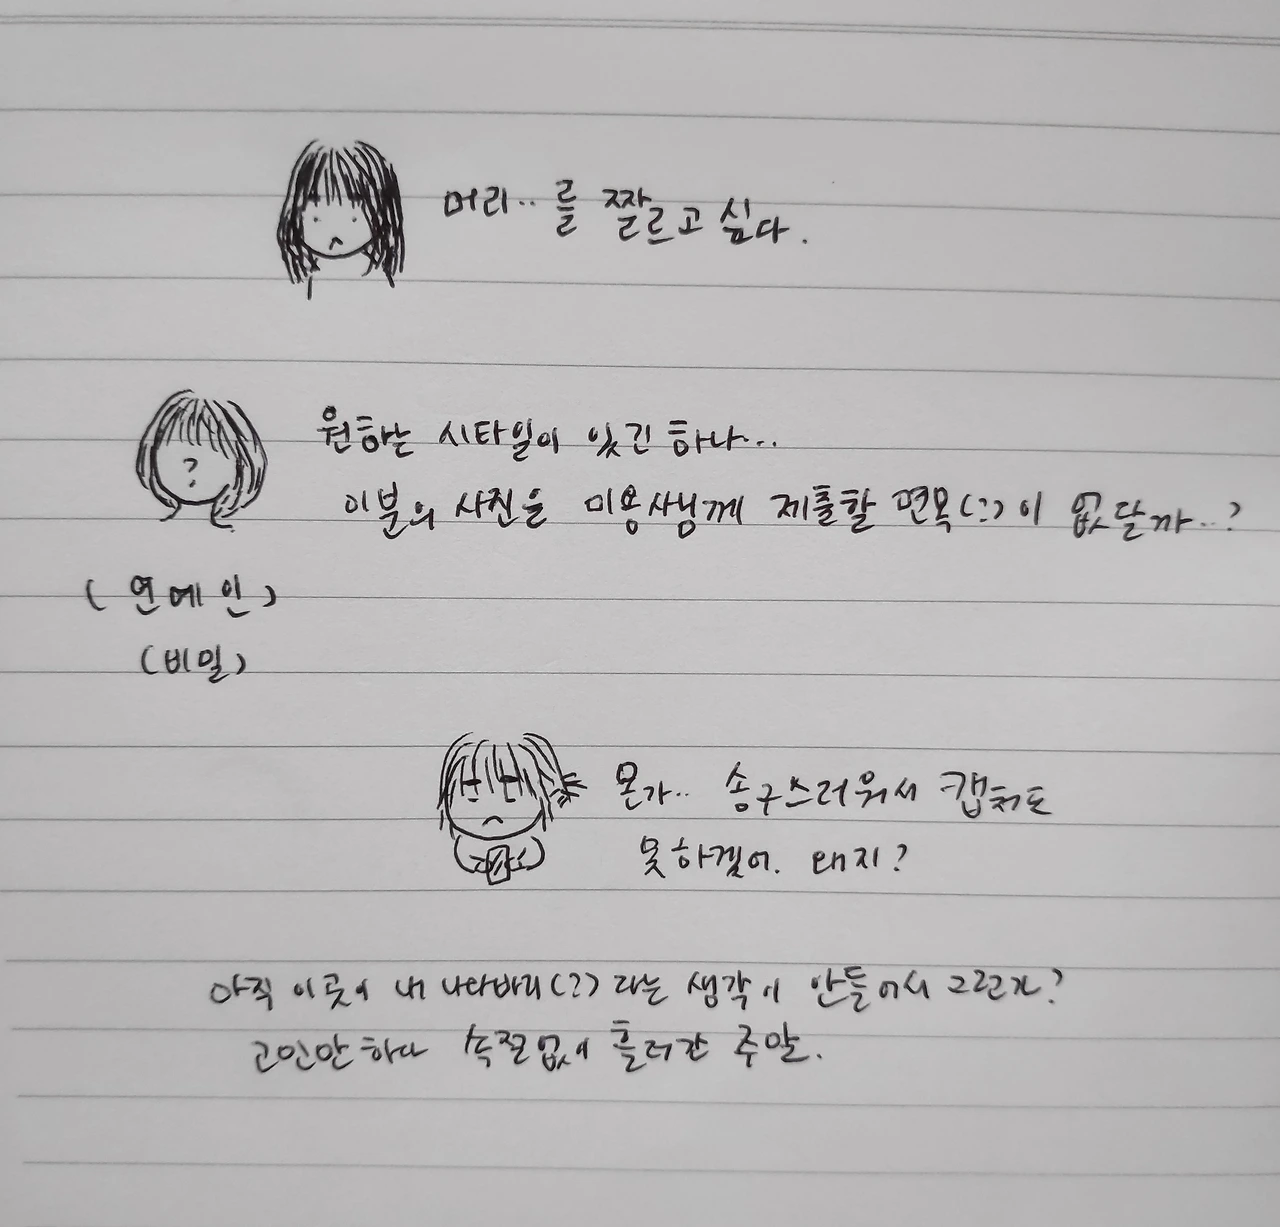 머리.. 를 짤르고 싶다.
?
원하는 시타일이 있긴 하나...
이분의 사진을 미용사님께 제출할 면목(?)이 없달까..?
(연예인)
(비밀)
몬가.. 송구스러워서 캡쳐도
못하겠어. 왜지?
아직 이곳이 내 나와바리(?)라는 생각이 안들어서 그런가?
고민만 하다 속절없이 흘러간 주말.